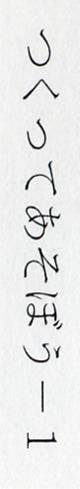 つくってあそぼう－1